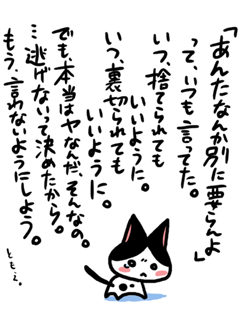 「あんたなんか別に要らんよ」
って、いつも言ってた。
いつ、捨てられても
いいように。
いつ、裏切られても
いいように。
でも、本当はヤなんだ、そんなの。
…逃げないって決めたから。
もう、言わないようにしよう。
ともえ。